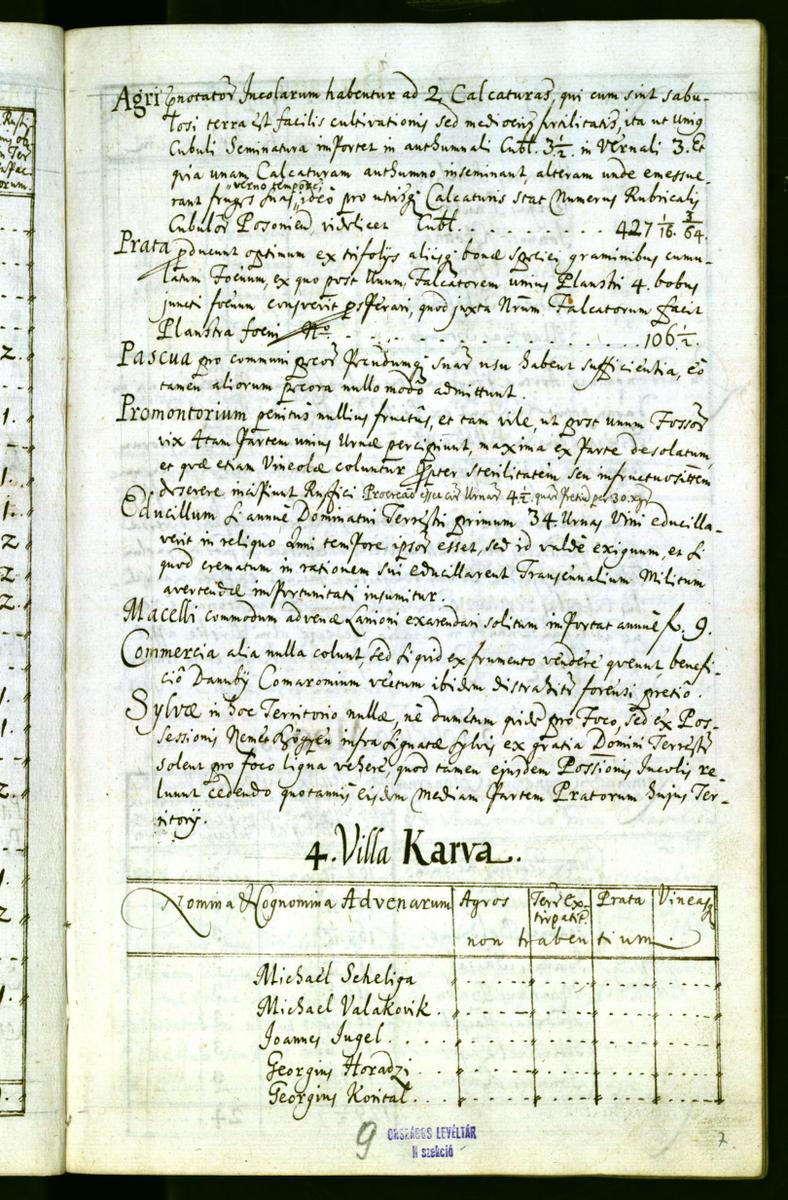 Agri pnotator Incolarum habentur ad 2 Calcaturas, qui cum sint sabu-
losi terra est facilis cultivationis sed mediocris fertilitatis, ita ut Unig
Cubuli Seminatura importet in authumnali Cubl. 3½. in Vernali 3. Et
quia unam Calcaturam authumno inseminant, alteram unde emessue-
verno tempore,
rant fruges suas, ideo pro utrisq Calcaturis stat Numerus Rubricalis
Cubulor Posonien. videlicet Cubl. . . . . . . . . 427 1/16. 3/64.
Prata pducunt optimum ex trifolys alisq bonæ speciei graminibus cumu-
latum Foenum, ex quo post Unum Falcatorem unius Planstri 4. bobus
juncti foenum consvevit psperari, quod juxta Nrum Falcatorum facit
Planstra foeni No. . . . . . . . . 106½.
Pascua pro communi pecor Pecudumq suar usu habent sufficientia, eo
tamen aliorum pecora nullo modo admittunt.
Promontorium penitus nullius fructus, et tam vile, ut post unum Fossor
vix 4tam Partem unius Urnæ percipiunt, maxima ex Parte desolatum,
et quæ etiam Vineolæ coluntur ppter sterilitatem seu infructuositem
deserere incipiunt Rustici Urnar 4½. quar pretia per 30. xgr
Educillum si annue Dominatui Terrestri primum 34. Urnas Vini educilla-
verit in reliquo Anni tempore ipsor esset, sed id valde exiguum, et si
quod crematum in rationem sui educillarent Transennalium Militum
avertendæ importunitati insumitur.
Macelli commodum advenæ Lanioni exarendari solitum importat annue f. 9.
Commercia alia nulla colunt, sed si quid ex frumento vendere queunt, benefi-
cio Danuby Comaromium vectum ibidem distrahitr forensi pretio.
Sylvæ in hoc Territorio nullæ, ne dumetum quidē pro Foco, sed ex Pos-
sessionis Nemes Ghögyen infra signatæ Sylvis ex gratia Domini Terrestris
solent pro foco ligna vehere, quod tamen ejusdem Possionis Incolis re-
luunt cedendo quotannis eisdem mediam Partem Pratorum hujus Ter-
ritory.
4. Villa Karva.
Nomina & Cognomina Advenarum Agros Terr ex- Prata Vineasq
tirpatit.
non habentium.
Michael Scheliga
Michael Valakovik.
Joannes Jugel.
Georgius Horadzi
Georgius Končal.
9
ORSZÁGOS LEVÉLTÁR
N szekció
7